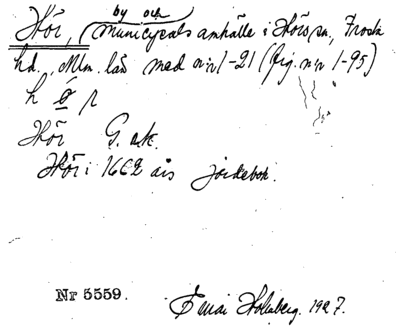 Höör, (by och municipalsamhälle i Höörs sn, Frosta
hd., Mlm. län med nr 1-21 (frg. nr 1-95)
h ö r
Höör G. ok.
Höör i 1662 års jordebok.
Nr 5559.
Ernst Holmberg. 1927.